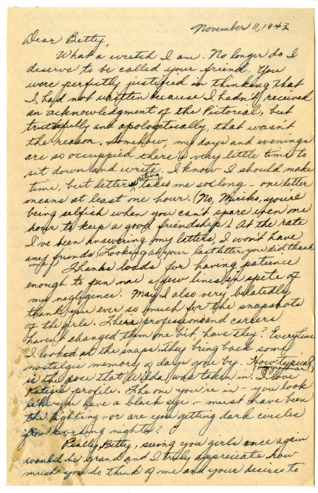 November 11, 1943
Dear Betty,
What a wretch I am. No longer do I
deserve to be called your friend. You
were perfectly justified in thinking that
I had not written because I hadn't received
an acknowledgment of the Pictorial, but
truthfully and apologetically, that wasn't
the reason. Somehow, my days and evenings
are so occupied there's very little time to
sit down and write. I know I should make
time, but letter writing takes me so long - one letter
means at least one hour. (No, Masako, you're
being selfish when you can't spare even one
hour to keep a good friendship.) At the rate
I've been answering my letters, I won't have
any friends. (Looking at your last letter, you did thank me)
Thanks loads for having patience
enough to pen me a few lines in spite of
my negligence. May I also very belatedly
thank you ever so much for the snapshots
of the girls. These professions and careers
haven't changed them one bit, have they? Everytime
I looked at the snaps they bring back some
nostalgic memory of days gone by. How typical
is the pose that was taken in. I love
profile. The one you're in - you look
like you have a black eye - must have been
the lighting - or are you getting dark circles
from working nights?
Really Betty, seeing you girls once again
would be grand and I truly appreciate how
much you do think of me and your desires to